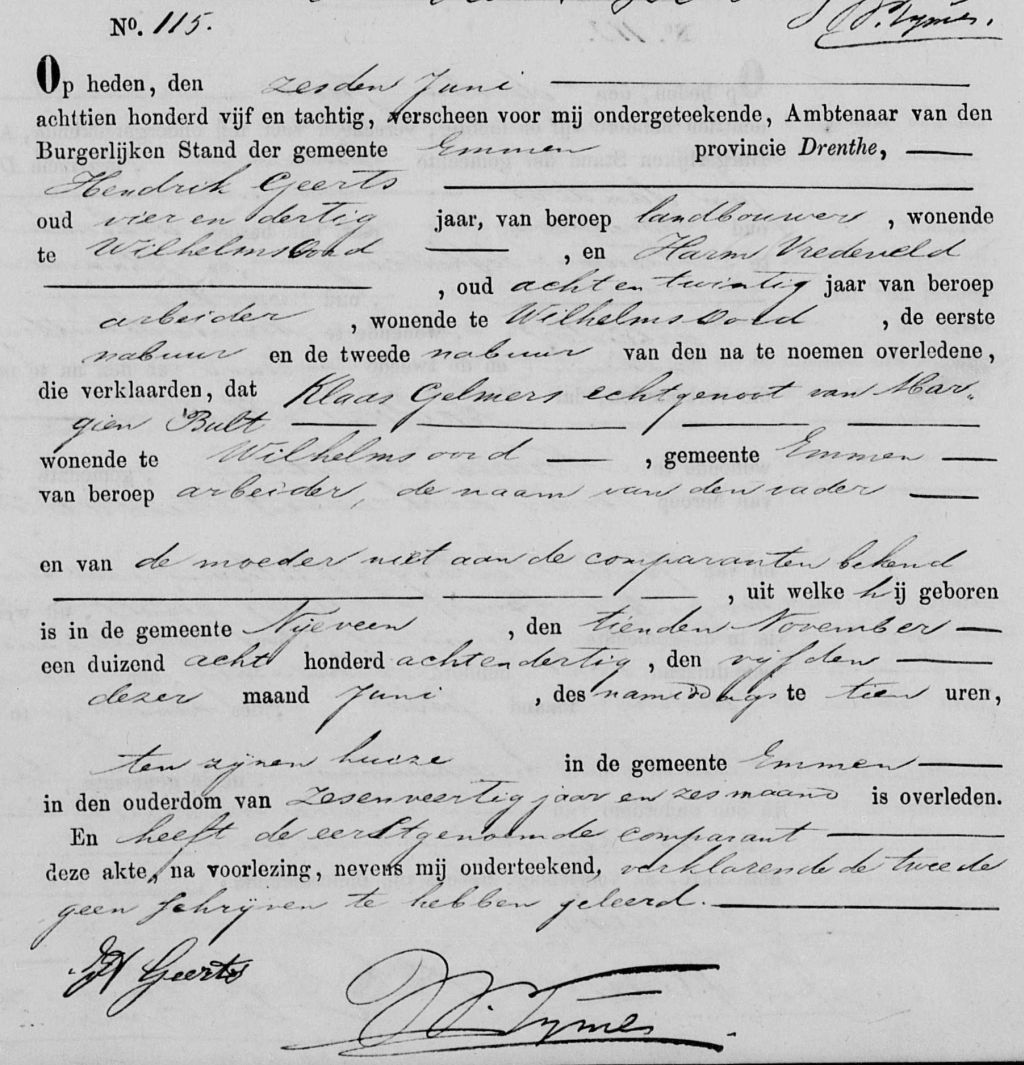 No. 115.
Op heden, den zesden Juni
achttien honderd vijf en tachtig, verscheen voor mij ondergeteekende, Ambtenaar van den
Burgerlijken Stand der gemeente Emmen provincie Drenthe,
Hendrik Geerts
oud vier en dertig jaar, van beroep landbouwer, wonende
te Wilhelmsoord, en Harm Vredeveld
, oud acht en twintig jaar van beroep
arbeider, wonende te Wilhelmsoord, de eerste
nabuur en de tweede nabuur van den na te noemen overledene,
die verklaarden, dat Klaas Gelmers echtgenoot van Mar„
gien Bult
wonende te Wilhelmsoord, gemeente Emmen
van beroep arbeider, de naam van den vader
en van de moeder niet aan de comparanten bekend
, uit welke hij geboren
is in de gemeente Nijeveen, den tienden November
een duizend acht honderd achtendertig, den vijfden
dezer maand Juni, des namiddags te tien uren,
ten zijnen huize in de gemeente Emmen
in den ouderdom van Zesenveertig jaar en zes maand is overleden.
En heeft de eerstgenoemde comparant
deze akte, na voorlezing, nevens mij onderteekend, verklarende de tweede
geen schrijven te hebben geleerd.
H Geerts
Tymes